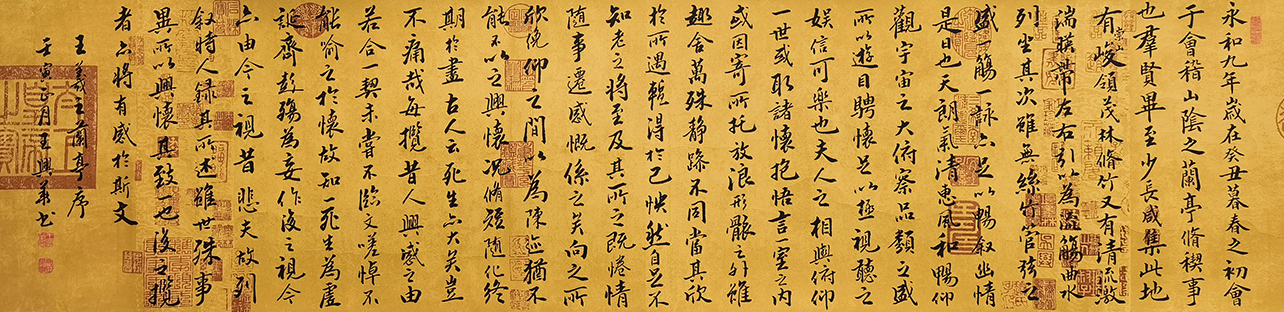 永和九年歲在癸丑暮春之初會
于會稽山陰之蘭亭脩稧事
也羣賢畢至少長咸集此地
有崇山峻領茂林脩竹又有清流激
湍暎帶左右引以為流觴曲水
列坐其次雖無絲竹管弦之
盛一觴一詠亦足以暢敘幽情
是日也天朗氣清惠風和暢仰
觀宇宙之大俯察品類之盛
所以遊目騁懷足以極視聽之
娛信可樂也夫人之相與俯仰
一世或取諸懷抱悟言一室之內
或因寄所托放浪形骸之外雖
趣舍萬殊靜躁不同當其欣
於所遇輒得於己怏然自足不
知老之將至及其所之既惓情
隨事遷感慨係之矣向之所
欣俛仰之間以為陳迹猶不
能不以之興懷況脩短隨化終
期於盡古人云死生亦大矣豈
不痛哉每攬昔人興感之由
若合一契未嘗不臨文嗟悼不
能喻之於懷故知一死生為虛
誕齊彭殤為妄作後之視今
亦由今之視昔悲夫故列
敘時人錄其所述雖世殊事
異所以興懷其致一也後之攬
者亦將有感於斯文
王羲之蘭亭序
壬寅正月王興華書